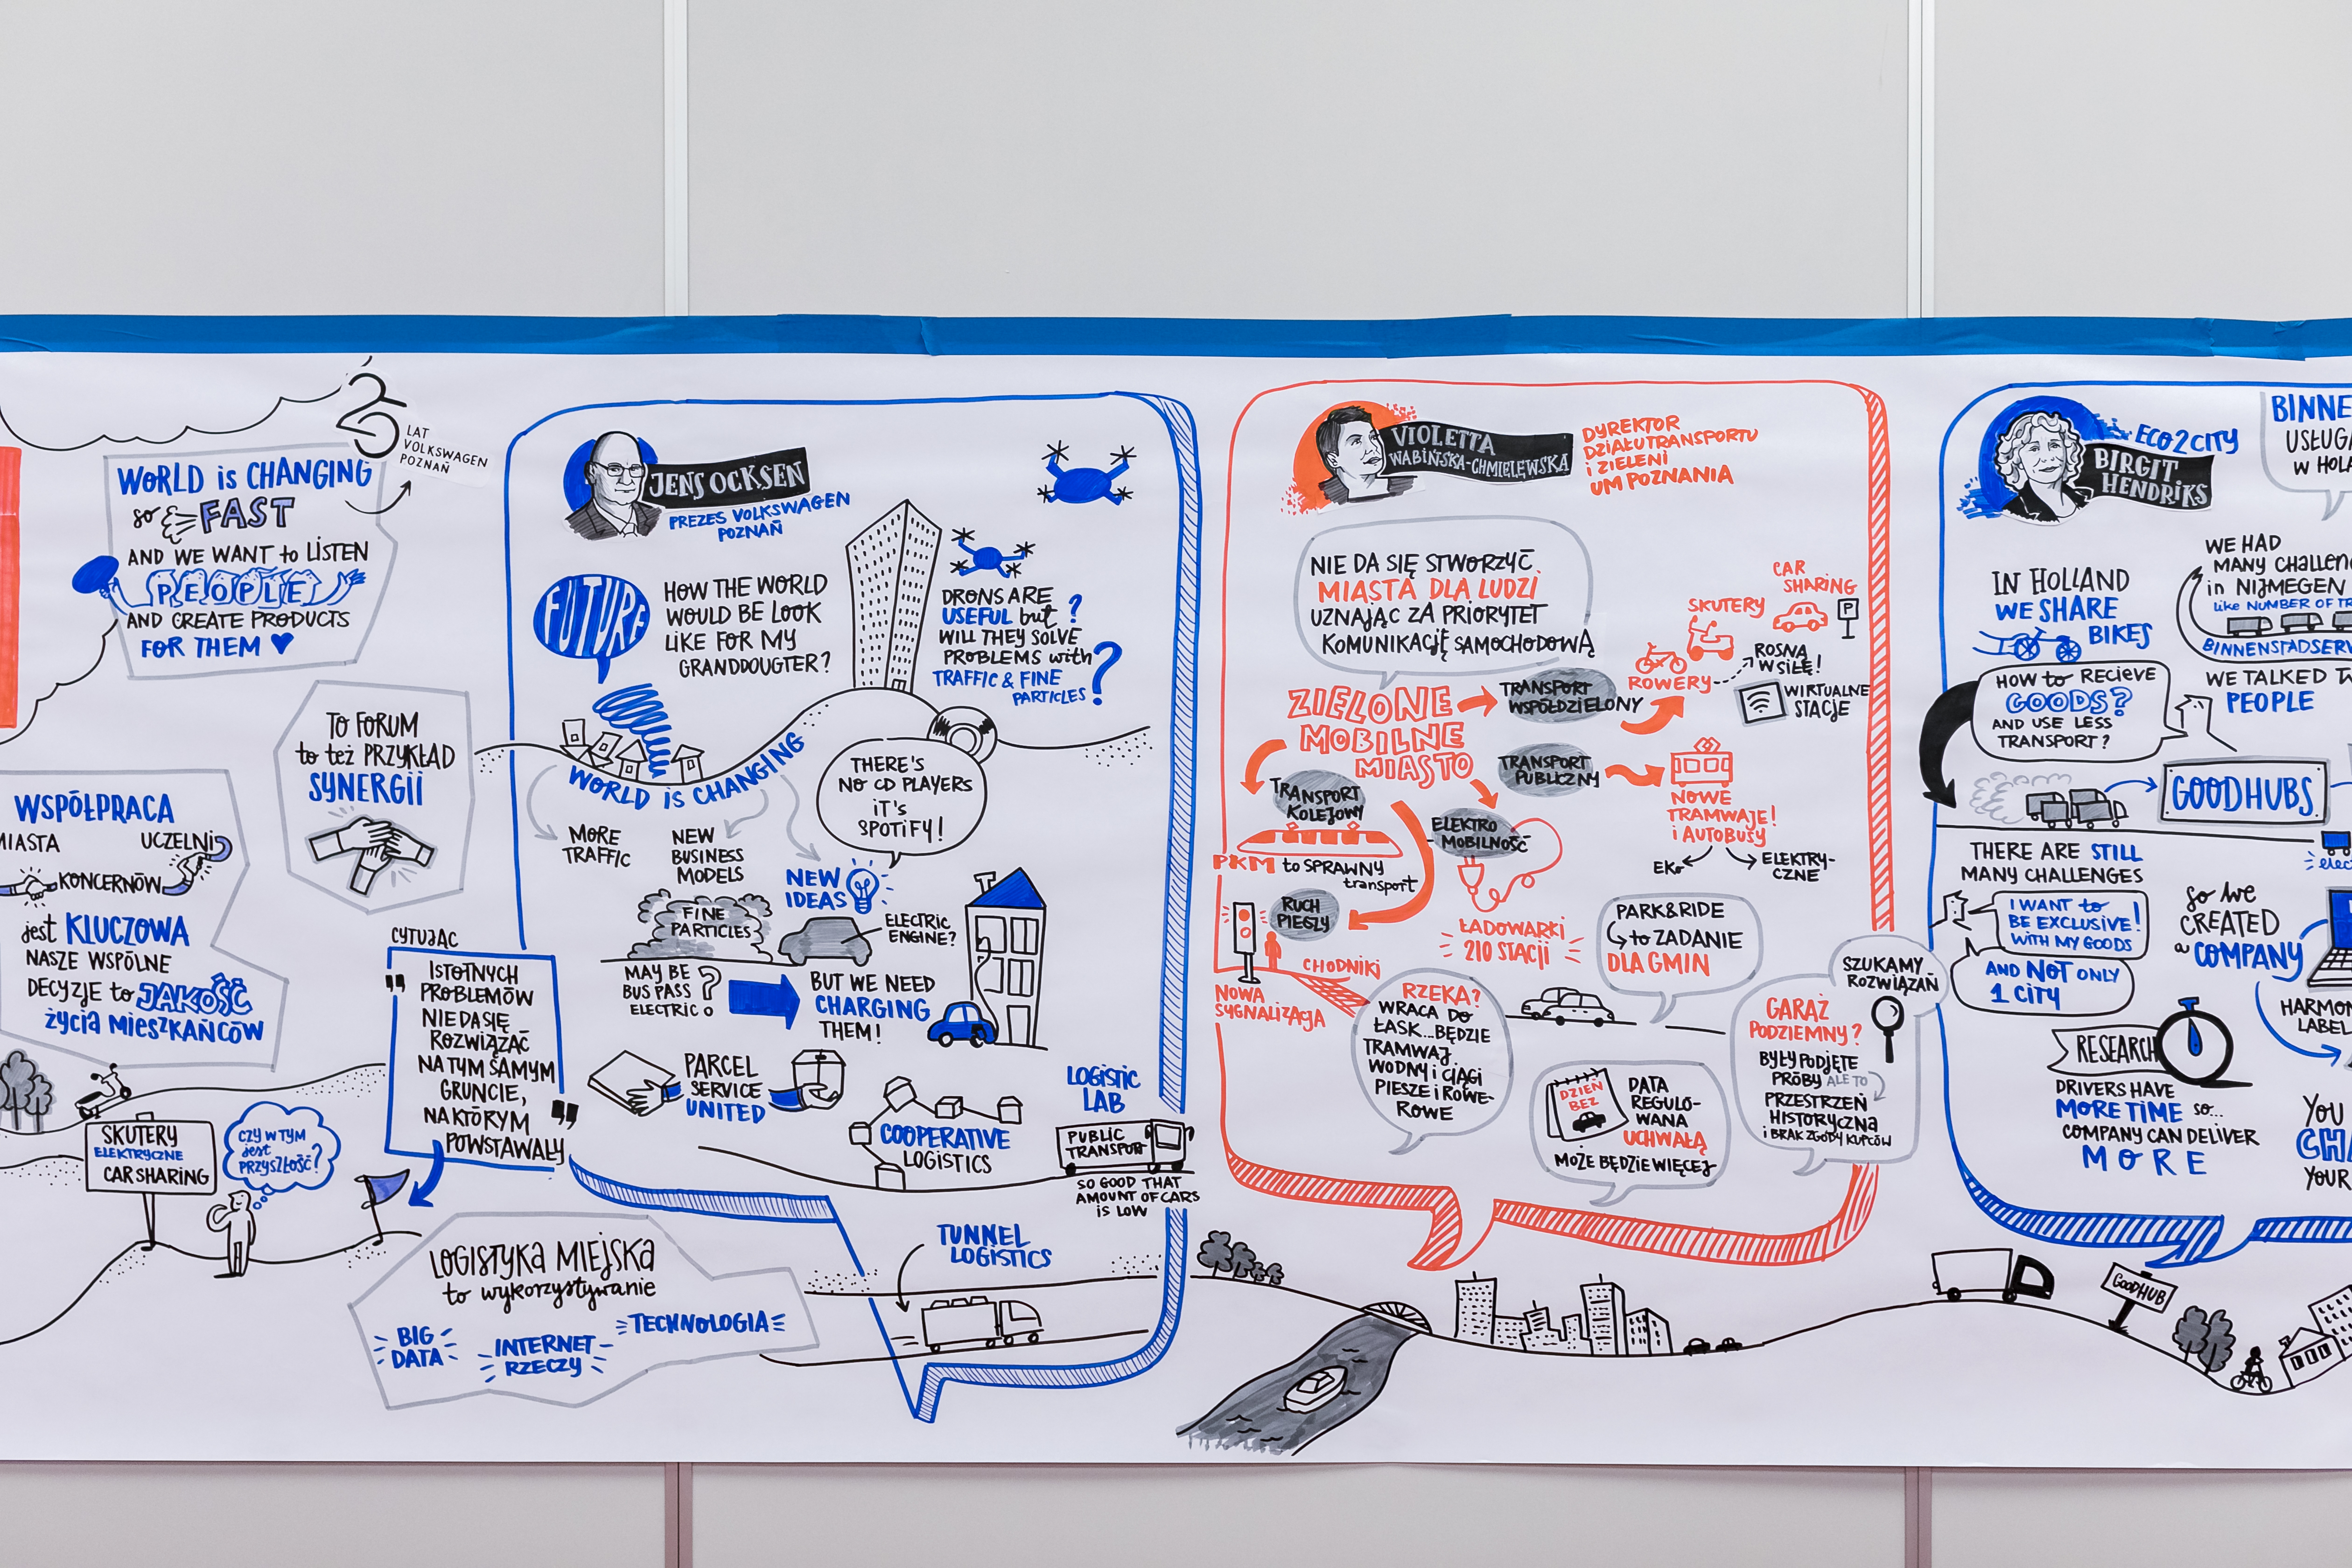 25
LAT
VOLKSWAGEN
POZNAŃ
WORLD iS CHANGING
so FAST
AND WE WANT to LiSTEN
PEOPLE
AND CREATE PRODUCTS
FOR THEM
TO FORUM
to też PRZYKŁAD
SYNERGII
WSPÓŁPRACA
MIASTA UCZELNi
KONCERNÓW
jest KLUCZOWA
NASZE WSPÓLNE
DECYZJE to JAKOŚĆ
życia MiESZKAŃCÓW
SKUTERY
ELEKTRYCZNE
CAR SHARING
CZY W TYM
jest
PRZYSZŁOŚĆ?
CYTUJĄC
"
ISTOTNYCH
PROBLEMÓW
NIE DA SIĘ
ROZWIĄZAĆ
NA TYM SAMYM
GRUNCIE,
NA KTÓRYM
POWSTAWAŁY
"
LOGISTYKA MIEJSKA
to wykorzystywanie
BIG
DATA
INTERNET
RZECZY
TECHNOLOGIA
JENS OCKSEN
PREZES VOLKSWAGEN
POZNAŃ
FUTURE
HOW THE WORLD
WOULD BE LOOK
LiKE FOR MY
GRANDDOUGTER?
DRONS ARE
USEFUL but ?
WILL THEY SOLVE
PROBLEMS with
TRAFFIC & FINE
PARTICLES ?
WORLD iS CHANGING
THERE'S
NO CD PLAYERS
iT'S
SPOTiFY!
MORE
TRAFFIC
NEW
BUSINESS
MODELS
NEW
IDEAS
FINE
PARTICLES
ELECTRIC
ENGINE?
MAY BE
BUS PASS
ELECTRIC ?
BUT WE NEED
CHARGING
THEM!
PARCEL
SERVICE
UNITED
COOPERATIVE
LOGISTICS
LOGISTIC
LAB
PUBLIC
TRANSPORT
SO GOOD THAT
AMOUNT OF CARS
iS LOW
TUNNEL
LOGISTICS
VIOLETTA
WABIŃSKA-CHMIELEWSKA
DYREKTOR
DZIAŁU TRANSPORTU
i ZIELENI
UM POZNANIA
NIE DA SIĘ STWORZYĆ
MIASTA DLA LUDZI
UZNAJĄC ZA PRIORYTET
KOMUNIKACJĘ SAMOCHODOWĄ
ZIELONE
MOBILNE
MIASTO
TRANSPORT
WSPÓŁDZIELONY
CAR
SHARING
P
SKUTERY
ROWERY
ROSNĄ
W SIŁĘ!
WIRTUALNE
STACJE
TRANSPORT
PUBLICZNY
NOWE
TRAMWAJE!
i AUTOBUSY
EKO
ELEKTRY-
CZNE
TRANSPORT
KOLEJOWY
PKM to SPRAWNY
transport
ELEKTRO
MOBILNOŚĆ
ŁADOWARKI
210 STACJI
RUCH
PIESZY
CHODNIKI
NOWA
SYGNALIZACJA
RZEKA?
WRACA DO
ŁASK...BĘDZIE
TRAMWAJ
WODNY i CIĄGI
PIESZE i ROWE-
ROWE
PARK&RIDE
to ZADANIE
DLA GMIN
DZIEŃ
BEZ
DATA
REGULO-
WANA
UCHWAŁĄ
MOŻE BĘDZIE WIĘCEJ
SZUKAMY
ROZWIĄZAŃ
GARAŻ
PODZIEMNY?
BYŁY PODJĘTE
PRÓBY ALE TO
PRZESTRZEŃ
HISTORYCZNA
i BRAK ZGODY KUPCÓW
ECO2CITY
BIRGIT
HENDRIKS
BINNE
USŁUGA
W HOLA
IN HOLLAND
WE SHARE
BIKES
WE HAD
MANY CHALLEN
in NIJMEGEN
Like NUMBER OF TR
BINNENSTADSERV
WE TALKED
PEOPLE
HOW to RECIEVE
GOODS?
AND USE LESS
TRANSPORT?
GOODHUBS
THERE ARE STILL
MANY CHALLENGES
I WANT to
BE EXCLUSIVE!
WiTH MY GOODS
AND NOT ONLY
1 CITY
So we
CREATED
a COMPANY
elec
HARMON
LABEL
RESEARCH
DRIVERS HAVE
MORE TIME so...
COMPANY CAN DELIVER
MORE
YOU
CHA
YOUR
GOODHUB